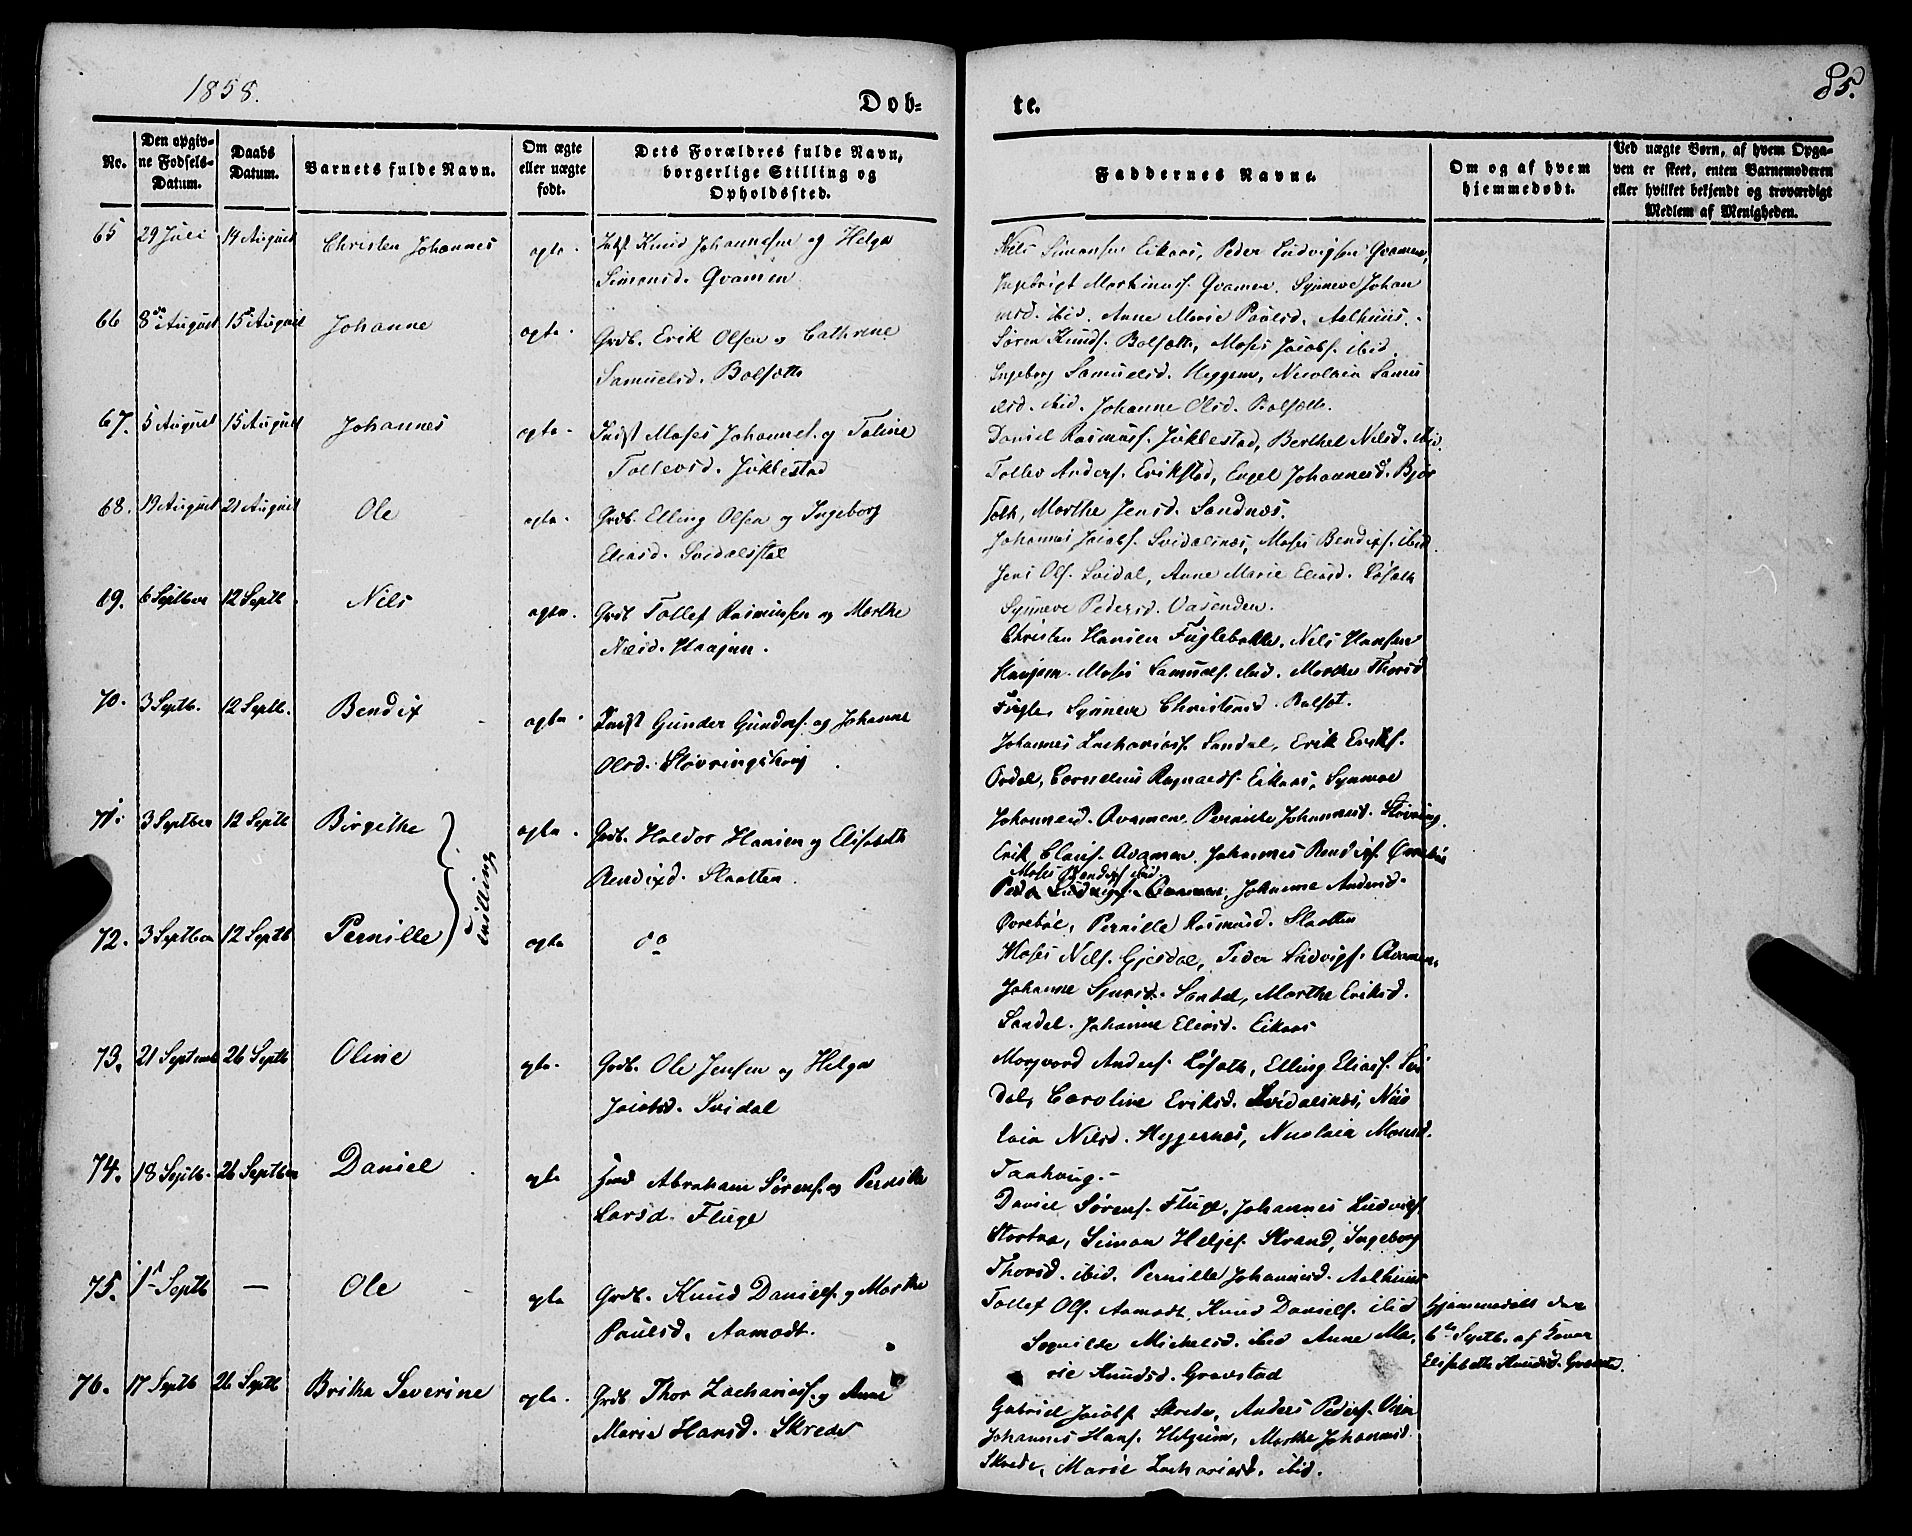 1858.
85.
Dob-
te.
No.
Den opgivne Fødsels-Datum.
Daabs Datum.
Barnets fulde Navn.
Om ægte eller uægte født.
Dets Forældres fulde Navn, borgerlige Stilling og Opholdssted.
Faddernes Navne.
Om og af hvem hjemmedøbt.
Ved uægte Børn, af hvem Opgaven er skeet, enten Barnemoderen eller hvilket bekjendt og troværdigt Medlem af Menigheden.
65 29 Juli 14 August Christen Johannes ægte. Indst Knud Johannesen og Helga
Simonsd. Qvamen
Nils Simonsen Eikaas, Peder Ludvigsen Qvamen,
Ingebrigt Martinusf. Qvamen. Synneve Johan
nesd. ibid. Anne Marie Paulsd. Aalhuus.
66 8de August 15de August Johanne ægte. Grdb. Erik Olsen og Cathrine
Samuelsd. Bolsætt
Søren Knudf. Bolsætt, Moses Jacobf. ibid.
Ingeborg Samuelsd. Heggem, Nicolaia Samu
elsd. ibid. Johanne Olsd. Bolsætt.
67. 5 August 15 August Johannes ægte. Indst Moses Johannesf. og Taline
Tollevsd. Jøklestad
Daniel Rasmusf. Jøklestad, Berthel Nilsd. ibid.
Tollev Andersf. Erikstad, Engel Johannesd. Bjør
Marthe Jensd. Sandnæs.
68. 19 August 21 August Ole ægte. Grdb. Elling Olsen og Ingeborg
Eliasd. Svidalsstøl
Johannes Jacobf. Svidalsnæs, Moses Bendixf. ibid.
Jens Olf. Svidal, Anne Marie Eliasd. Løsæth
Synneve Pedersd. Vasenden.
69. 6 Septber 12 Septb. Nils ægte. Grdb Tollef Rasmussen og Marthe
Nilsd. Haajem.
Christen Hansen Fuglebakke. Nils Hansen
Haajem. Moses Samuelf. ibid. Marthe Thorsd
Fugle, Synneve Christensd. Bolsæt.
70. 3 Septb. 12 Septb. Bendix ægte. Indst Gunder Gundersf. og Johanne
Olsd. Støvringshaug
Johannes Zachariasf. Sandal, Erik Erikf.
Ordal, Cornelius Ragnaldf. Eikaas, Synneve
Johannesd. Qvamen. Pernille Johannesd. Støvring.
71. 3 Septber 12 Septb Birgithe ægte. Grdb. Haldor Hansen og Elisabeth
Bendixd. Slaatten.
Erik Clausf. Qvamen, Johannes Bendixf. Øvrebøe
Moses Bendixf ibid.
Peder Ludvigf. Qvamen. Johanne Andersd.
Øvrebøe, Pernille Rasmusd. Slaatten
Tvilling
72. 3 Septber 12 Septb Pernille ægte do
Moses Nilsf. Gjesdal, Peder Ludvigf. Qvamen,
Johanne Sjursd. Sandal, Marthe Eriksd.
Sandal. Johanne Eliasd. Eikaas
73. 21 Septemb 26 Septb Oline ægte. Grdb. Ole Jensen og Helga
Jacobsd. Svidal
Andersf. Løsæth, Elling Eliasf. Svi
dal, Caroline Eriksd. Svidalsnæs, Nico
laia Nilsd. Heggernæs, Nicolaia Monsd.
Taahaug.-
74. 18 Septb. 26 Septber Daniel ægte Abraham Sørensf. og Pernille
Larsd. Fluge
Daniel Sørensf. Fluge, Johannes Ludvigf.
Stortræ, Simon Heljef. Strand, Ingeborg
Thorsd. ibid. Pernille Johannesd. Aalhuus
75. 1st Septb — Ole ægte Grdb. Knud Danielf. og Marthe
Paulsd. Aamodt.
Tollef Olf. Aamodt, Knud Danielf. ibid
Michelsd. ibid Anne Ma,
rie Knudsd. Gravstad
Hjemmedøbt den
6te Septb. af
Elisabeth Knudsd. Gravstad.
76. 17 Septb 26 Septb Britha Severine ægte. Grdb. Thor Zachariasf. og Anne
Marie Hansd. Skrede
Gabriel Jacobf. Skrede, Anders Pedersf.
Johannes Hansf. Helgeim, Marthe Johannesd.
Skrede, Marie Zachariasd. ibid.